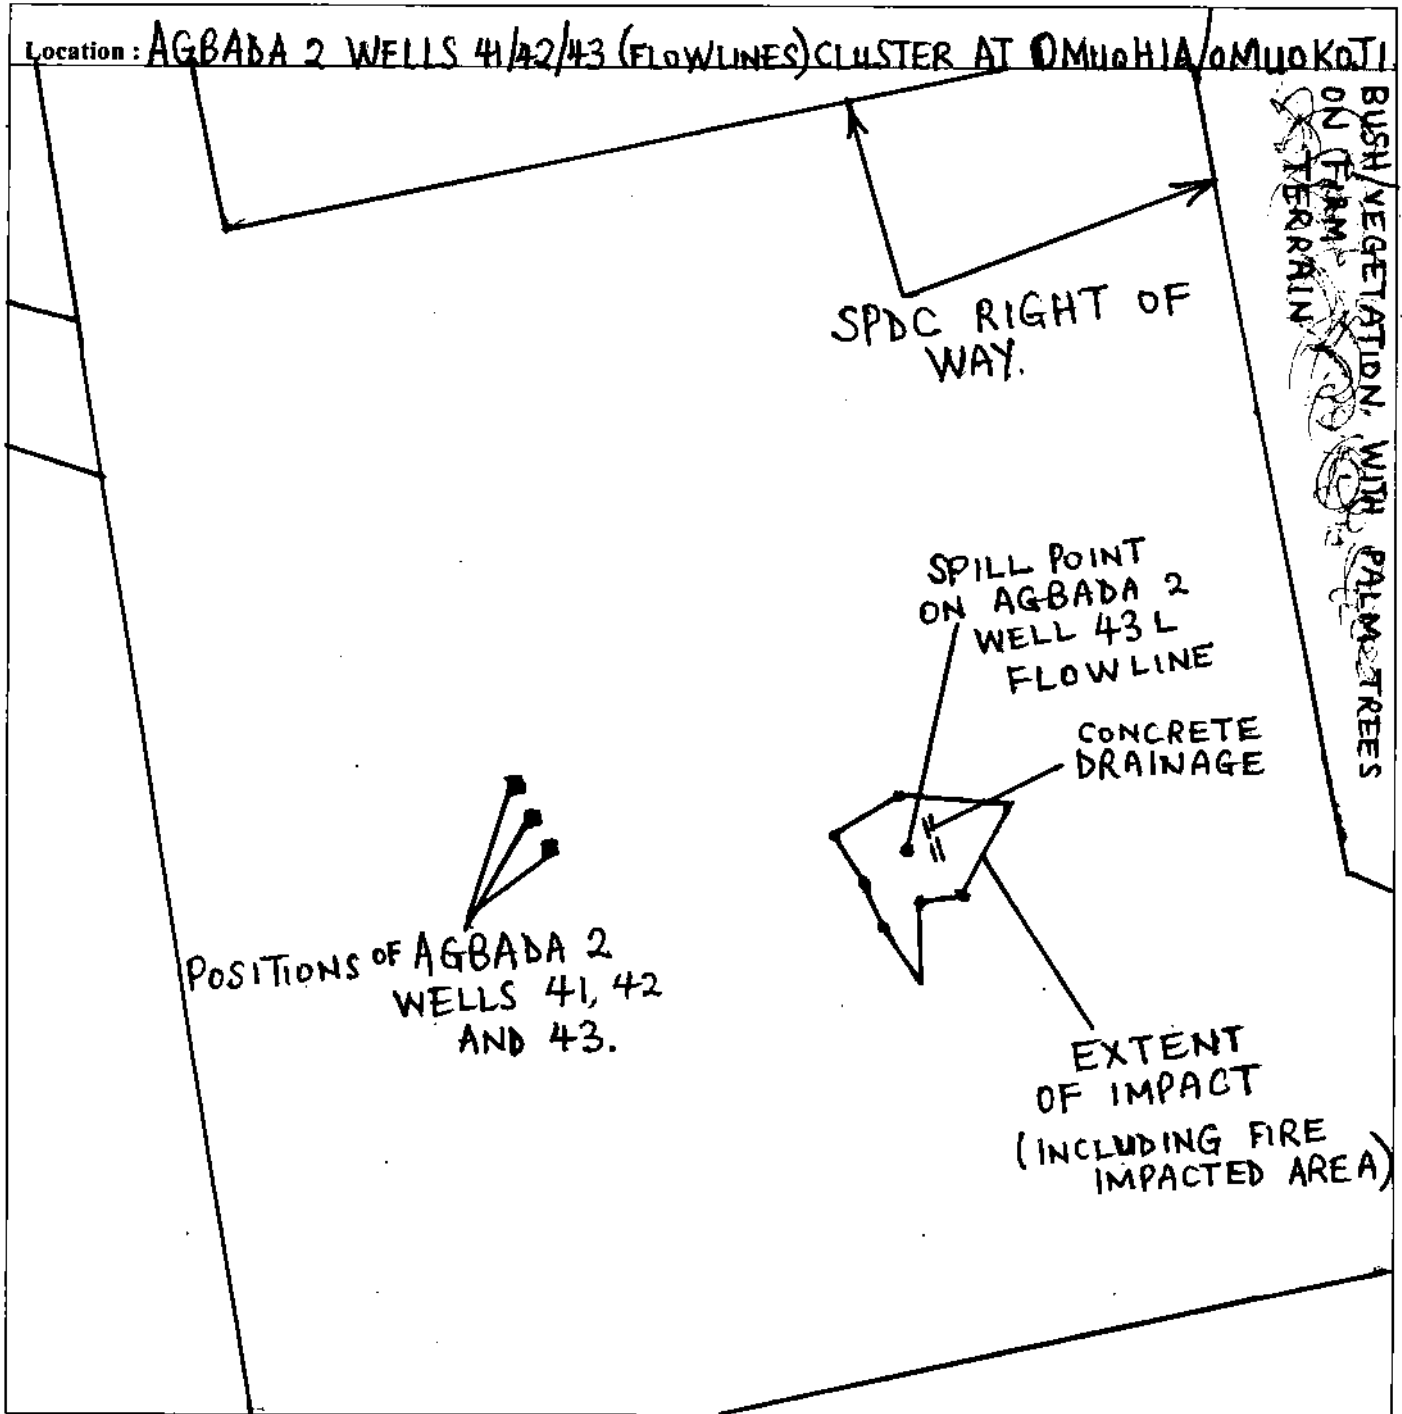 Location : AGBADA 2 WELLS 41/42/43 (FLOWLINES) CLUSTER AT OMUOHIA/OMUOKOJI
BUSH/VEGETATION, WITH PALM TREES
ON FIRM
TERRAIN
SPDC RIGHT OF
WAY.
SPILL POINT
ON AGBADA 2
WELL 43 L
FLOWLINE
CONCRETE
DRAINAGE
POSITIONS OF AGBADA 2
WELLS 41, 42
AND 43.
EXTENT
OF IMPACT
(INCLUDING FIRE
IMPACTED AREA)